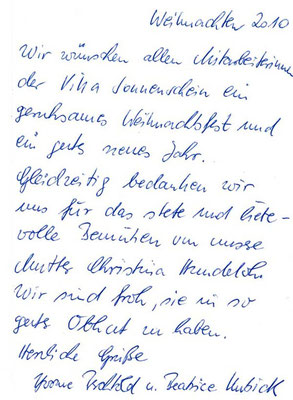 Weihnachten 2010
Wir wünschen allen Mitarbeiterinnen
der Villa Sonnenschein ein
geruhsames Weihnachtsfest und
ein gutes neues Jahr.
Gleichzeitig bedanken wir
uns für das stete und liebe-
volle Bemühen um unsere
Mutter Christina
Wir sind froh, sie in so
guter Obhut zu haben.
Herzliche Grüße
Yvonne u. Beatrice